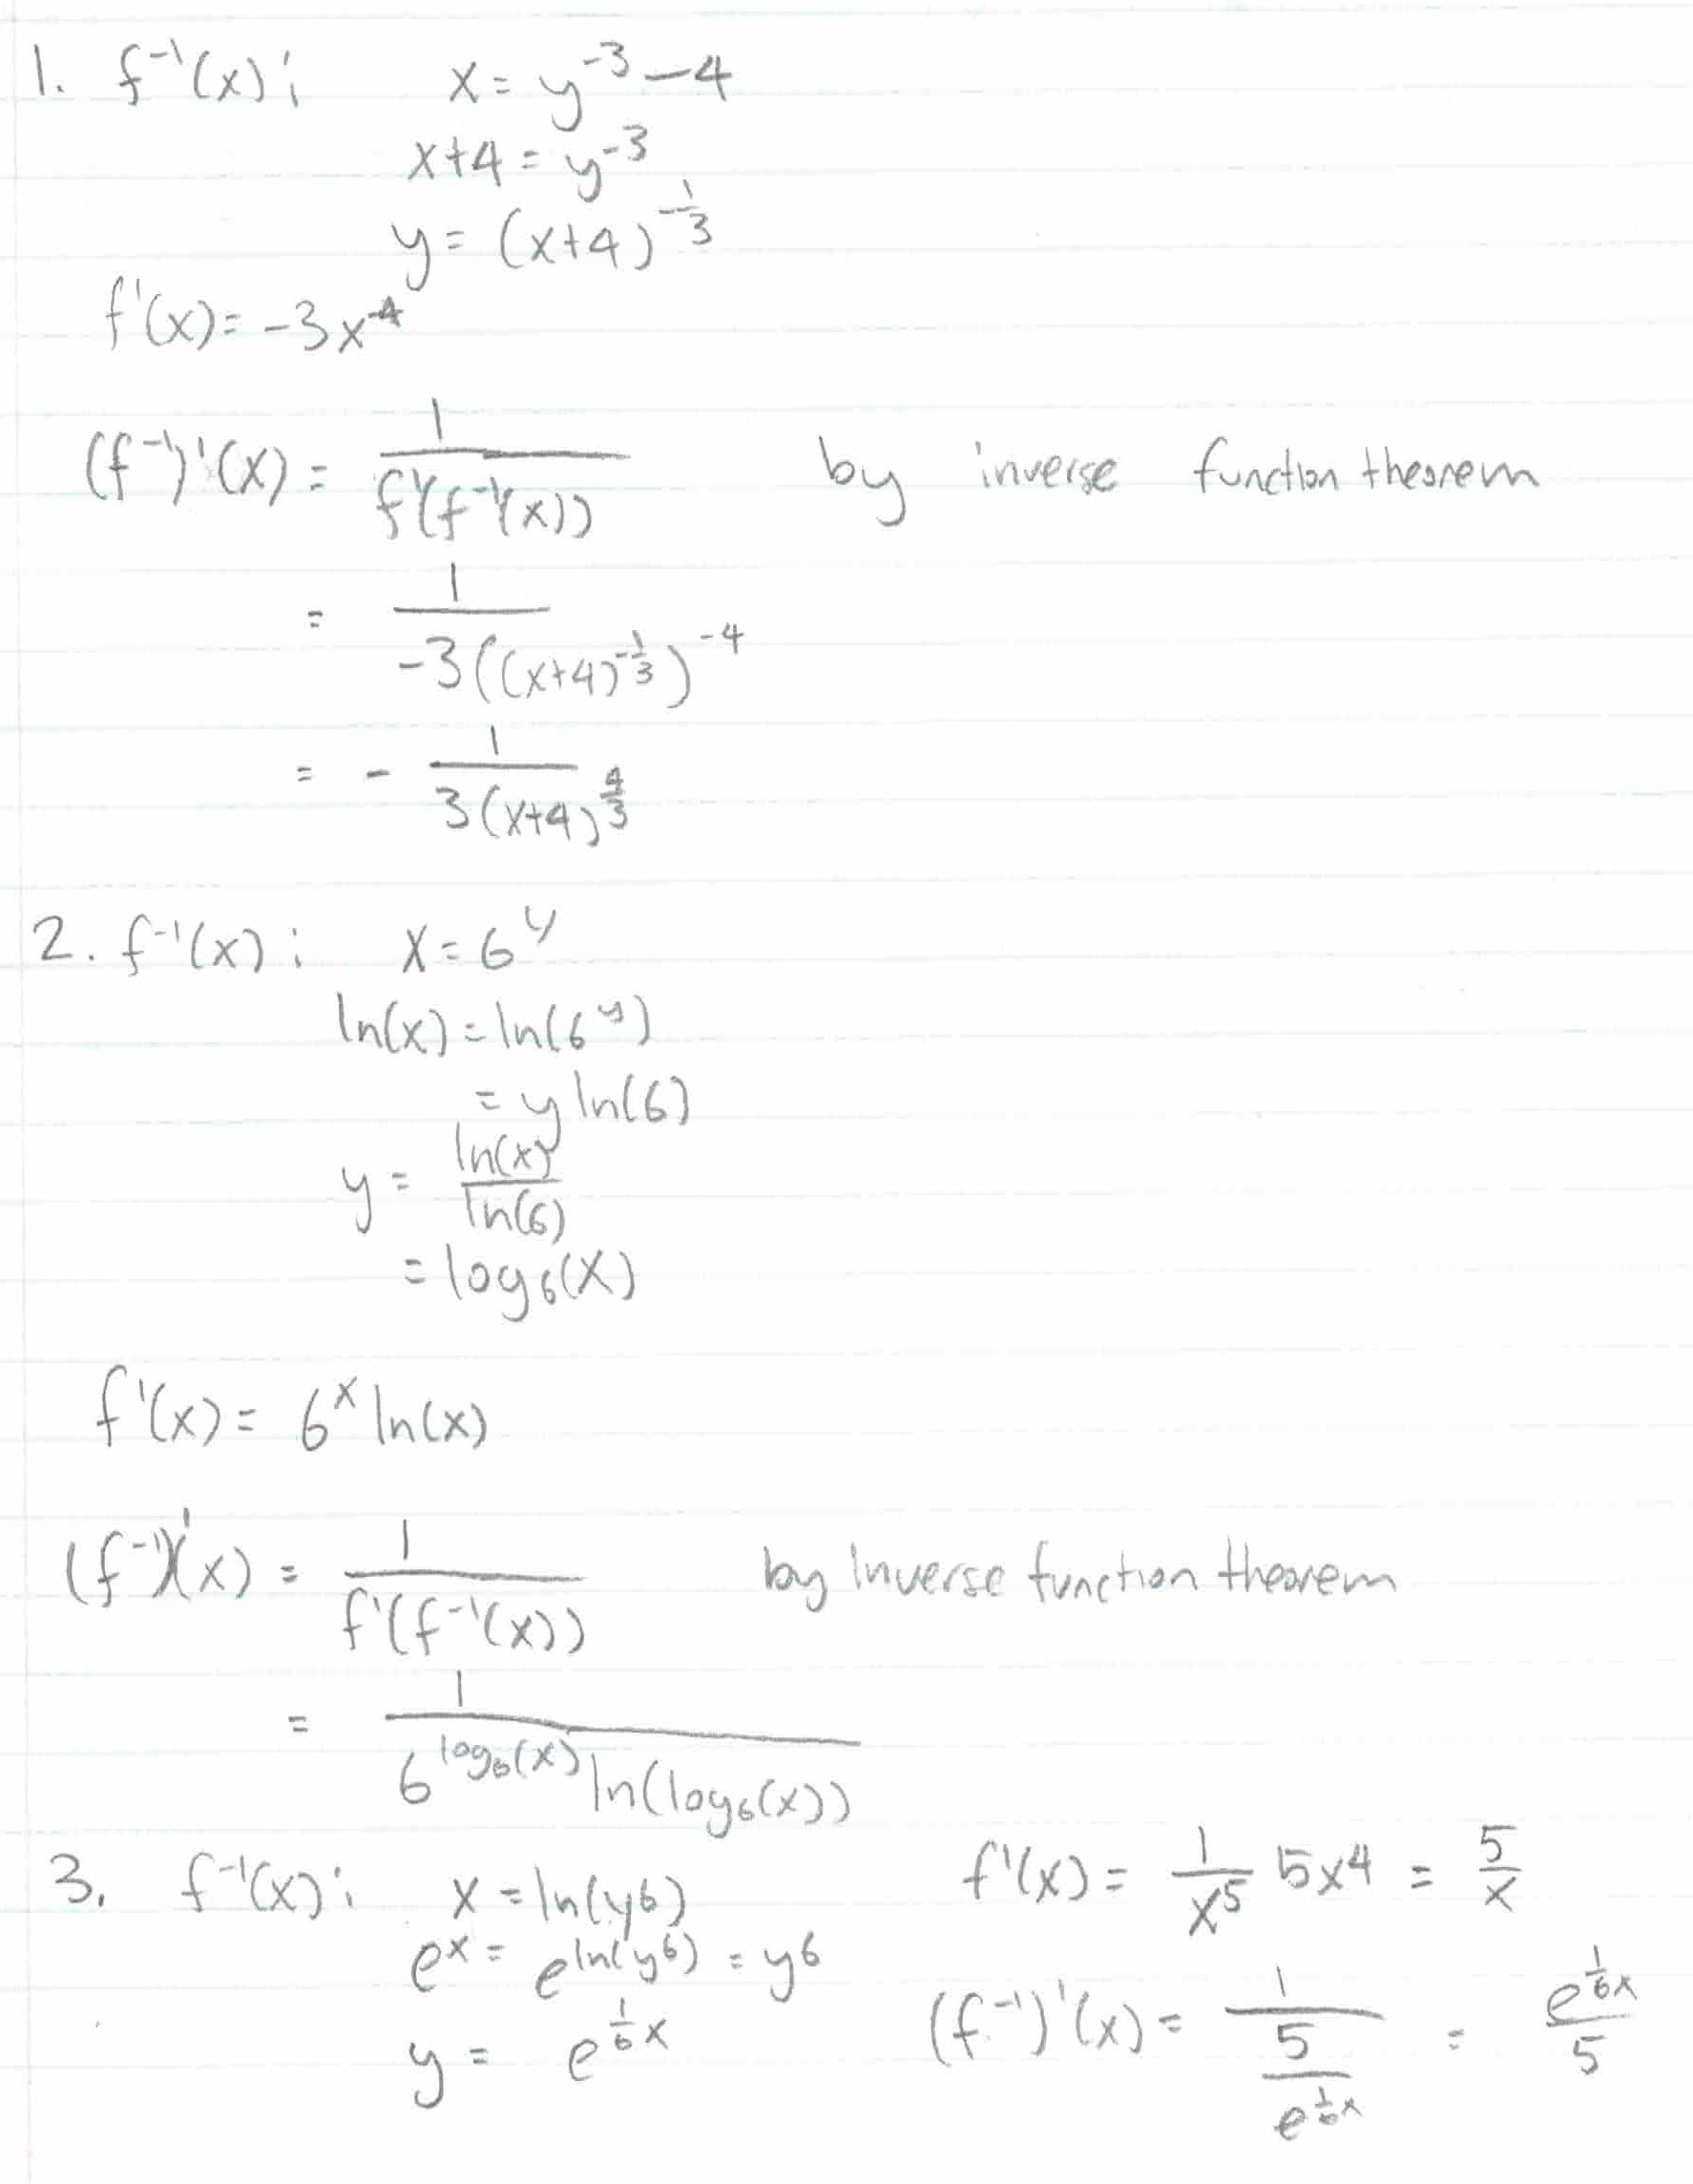 1. f⁻¹(x): x = y⁻³ - 4
x+4 = y⁻³
y = (x+4)^(-1/3)
f'(x) = -3x⁻⁴
(f⁻¹)'(x) = 1/(f'(f⁻¹(x))) by inverse function theorem
= 1/(-3((x+4)^(-1/3))⁻⁴)
= - 1/(3(x+4)^(4/3))
2. f⁻¹(x): x = 6^y
ln(x) = ln(6^y)
= y ln(6)
y = ln(x)/ln(6)
= log₆(x)
f'(x) = 6^x ln(x)
(f⁻¹)'(x) = 1/(f'(f⁻¹(x))) by inverse function theorem
= 1/(6^(log₆(x)) ln(log₆(x)))
3. f⁻¹(x): x = ln(y⁶)
e^x = e^(ln(y⁶)) = y⁶
y = e^(1/6 x)
f'(x) = 1/x⁵ 5x⁴ = 5/x
(f⁻¹)'(x) = 1/(5/e^(1/6 x)) = e^(1/6 x)/5